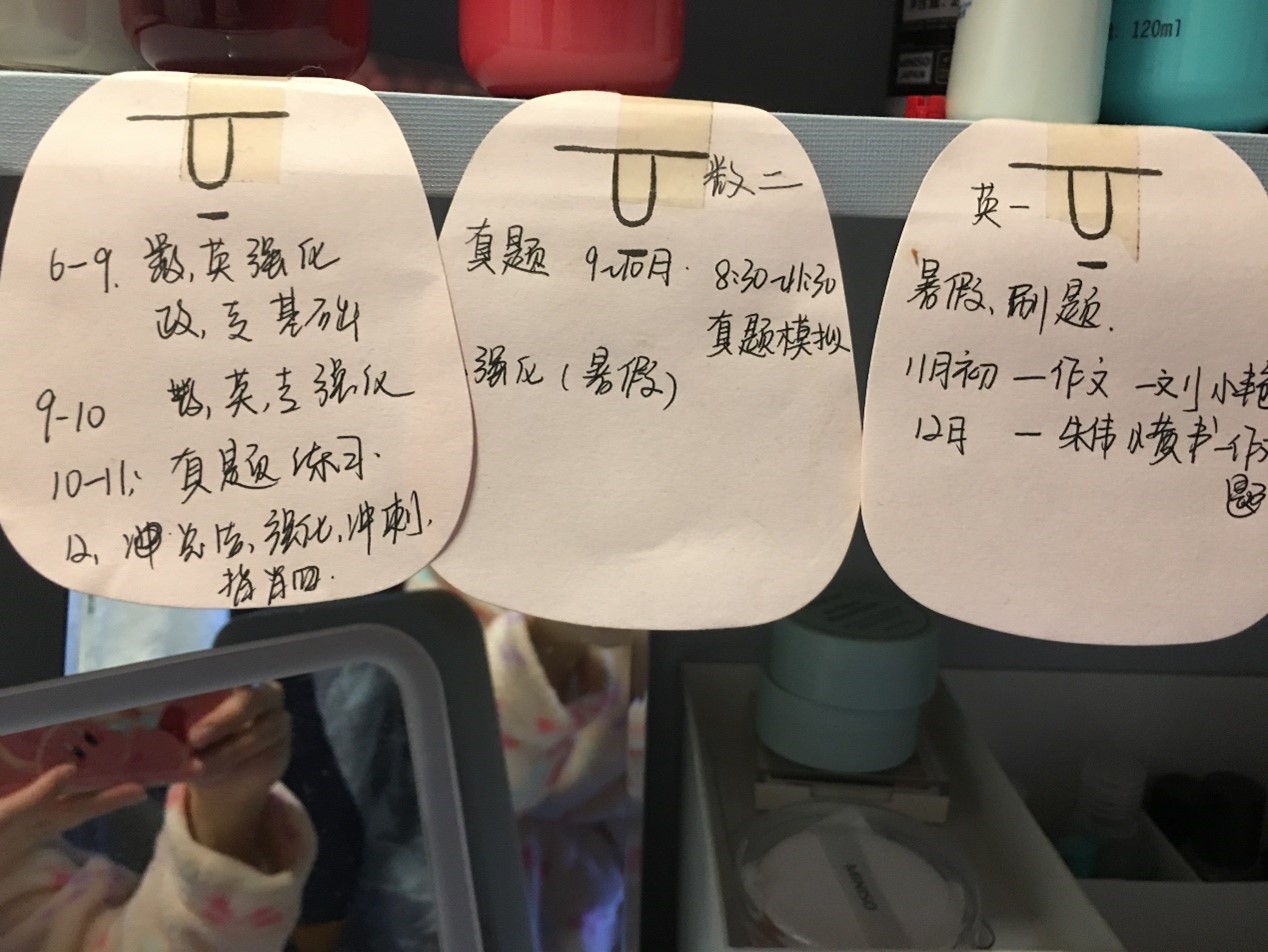 6-9. 数,英强化
政,专基础
9-10 数,英,专强化
10-11: 真题练习.
12, 冲 总结,强化,冲刺,
背肖四.
数二
真题 9~10月. 8:30~11:30
真题模拟
强化(暑假)
英一
暑假、刷题.
11月初 — 作文 — 刘小艳
12月 — 朱伟 黄书-作文
题
120ml
MINISO
JAPAN
MINISO